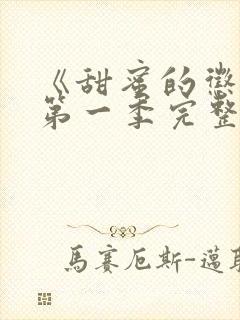 《甜蜜的懲
第一季完整
馬賽厄斯-邁耶